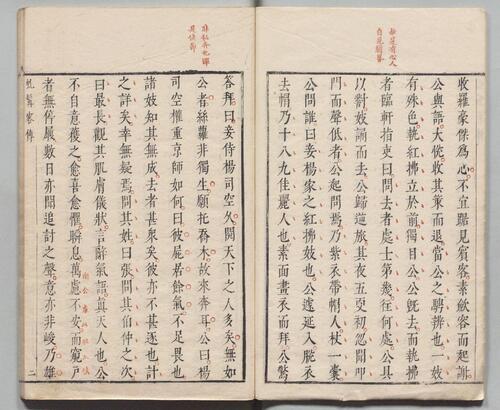 收羅豪傑爲心不宜踞見賓客素斂容而起謝
公與語大悅收其策而退當公之騁辨也一妓
有殊色執紅拂立於前獨目公公既去而執拂
者臨軒指吏曰問去者處士第幾住何處公具
以對妓誦而去公歸逆旅其夜五更初忽聞叩
門而聲低者公起問焉乃紫衣帶帽人杖一囊
公問誰曰妾楊家之紅拂妓也公遽延入脫衣
去帽乃十八九佳麗人也素面畫衣而拜公驚
答拜曰妾侍楊司空久閱天下之人多矣無如
公者絲蘿非獨生願托喬木故來奔耳公曰楊
司空權重京師如何曰彼屍居餘氣不足畏也
諸妓知其無成去者甚衆矣彼亦不甚逐也計
之詳矣幸無疑焉問其姓曰張問其伯仲之次
曰最長觀其肌膚儀狀言辭氣語真天人也公
不自意獲之愈喜愈懼瞬息萬慮不安而窺戶
者無停屨數日亦聞追討之聲意亦非峻乃雄
虬髯客傳 二